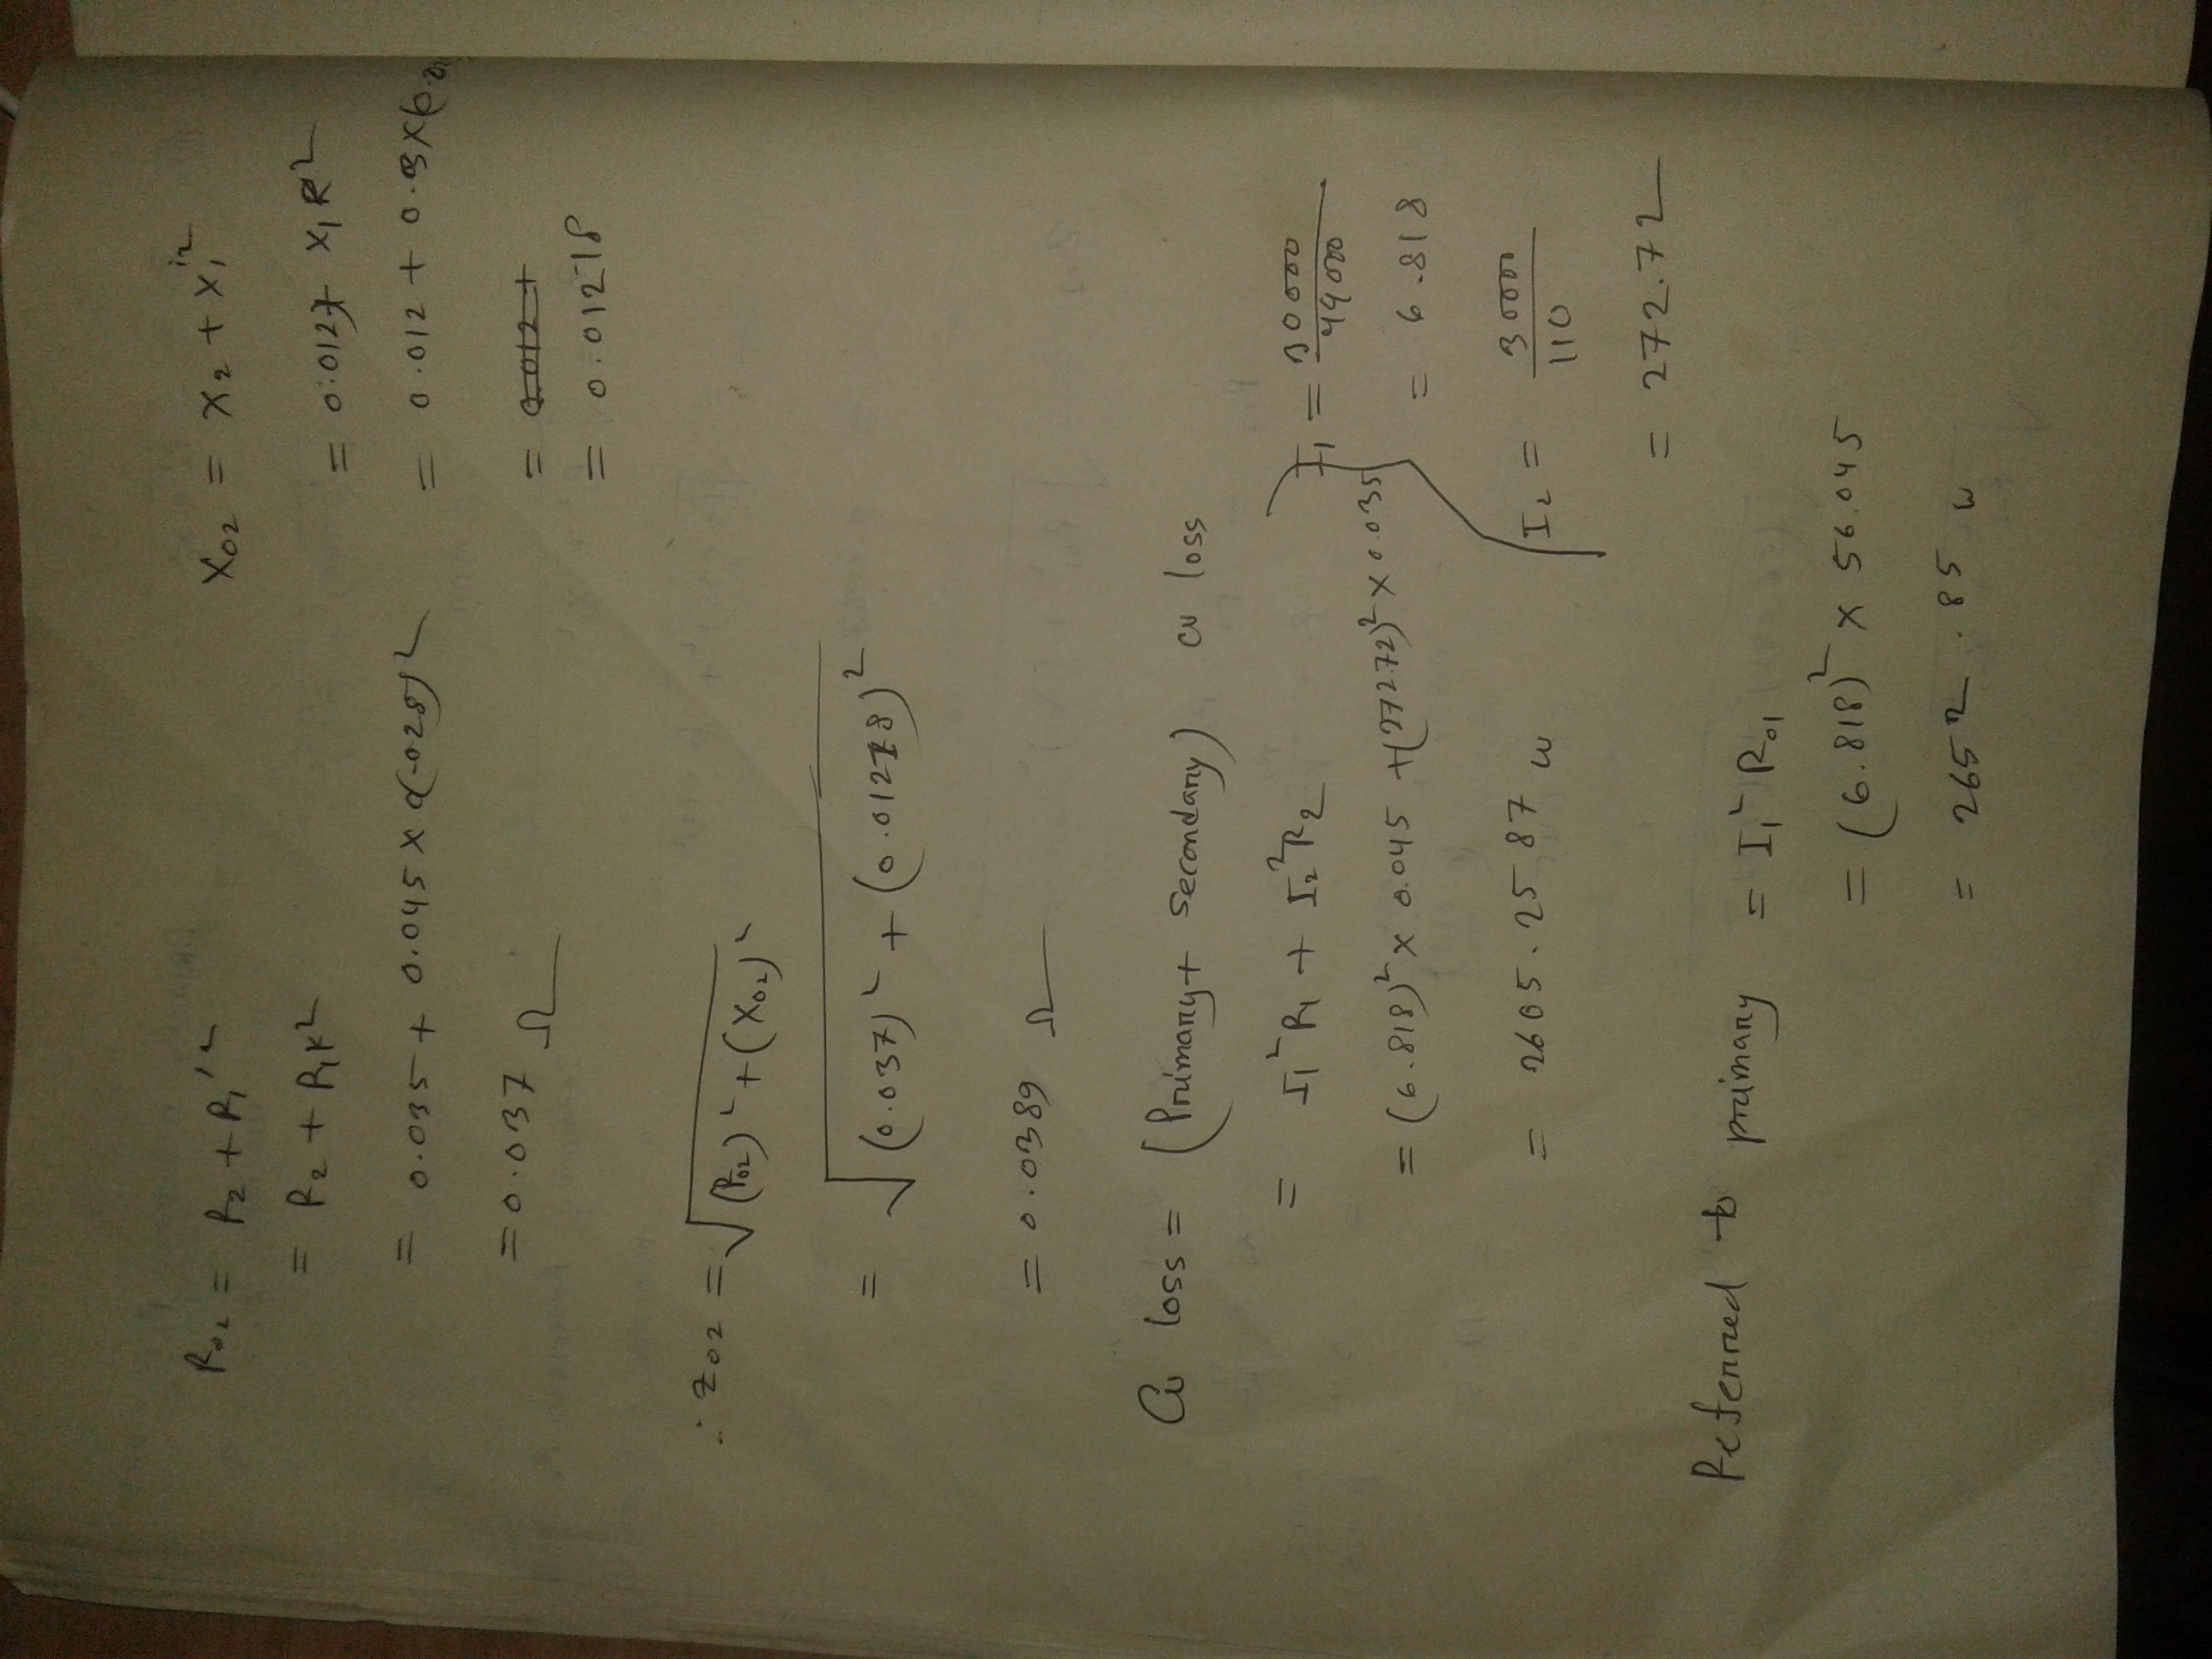 R₀₂ = R₂ + R₁'²
= R₂ + R₁K²
= 0.035 + 0.045 × (.025)²
= 0.037 Ω
X₀₂ = X₂ + X₁'²
= 0.012 + X₁K²
= 0.012 + 0.3×(0.0
= 0.012 +
= 0.01218
∴ Z₀₂ = √(R₀₂)² + (X₀₂)²
= √(0.037)² + (0.01218)²
= 0.0389 Ω
Cu loss = (Primary + Secondary) cu loss
= I₁²R₁ + I₂²R₂
= (6.818)² × 0.045 + (272.72)² × 0.035
= 2605.2587 w
I₁ = 30000/44000
= 6.818
I₂ = 30000/110
= 272.72
Referred to primary = I₁² R₀₁
= (6.818)² × 56.045
= 2652.85 w